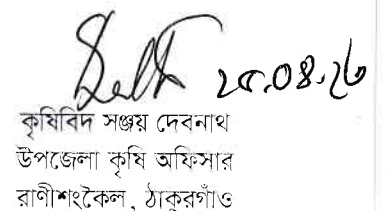 ২৫.০৪.২৬
কৃষিবিদ সঞ্জয় দেবনাথ
উপজেলা কৃষি অফিসার
রাণীশংকৈল, ঠাকুরগাঁও